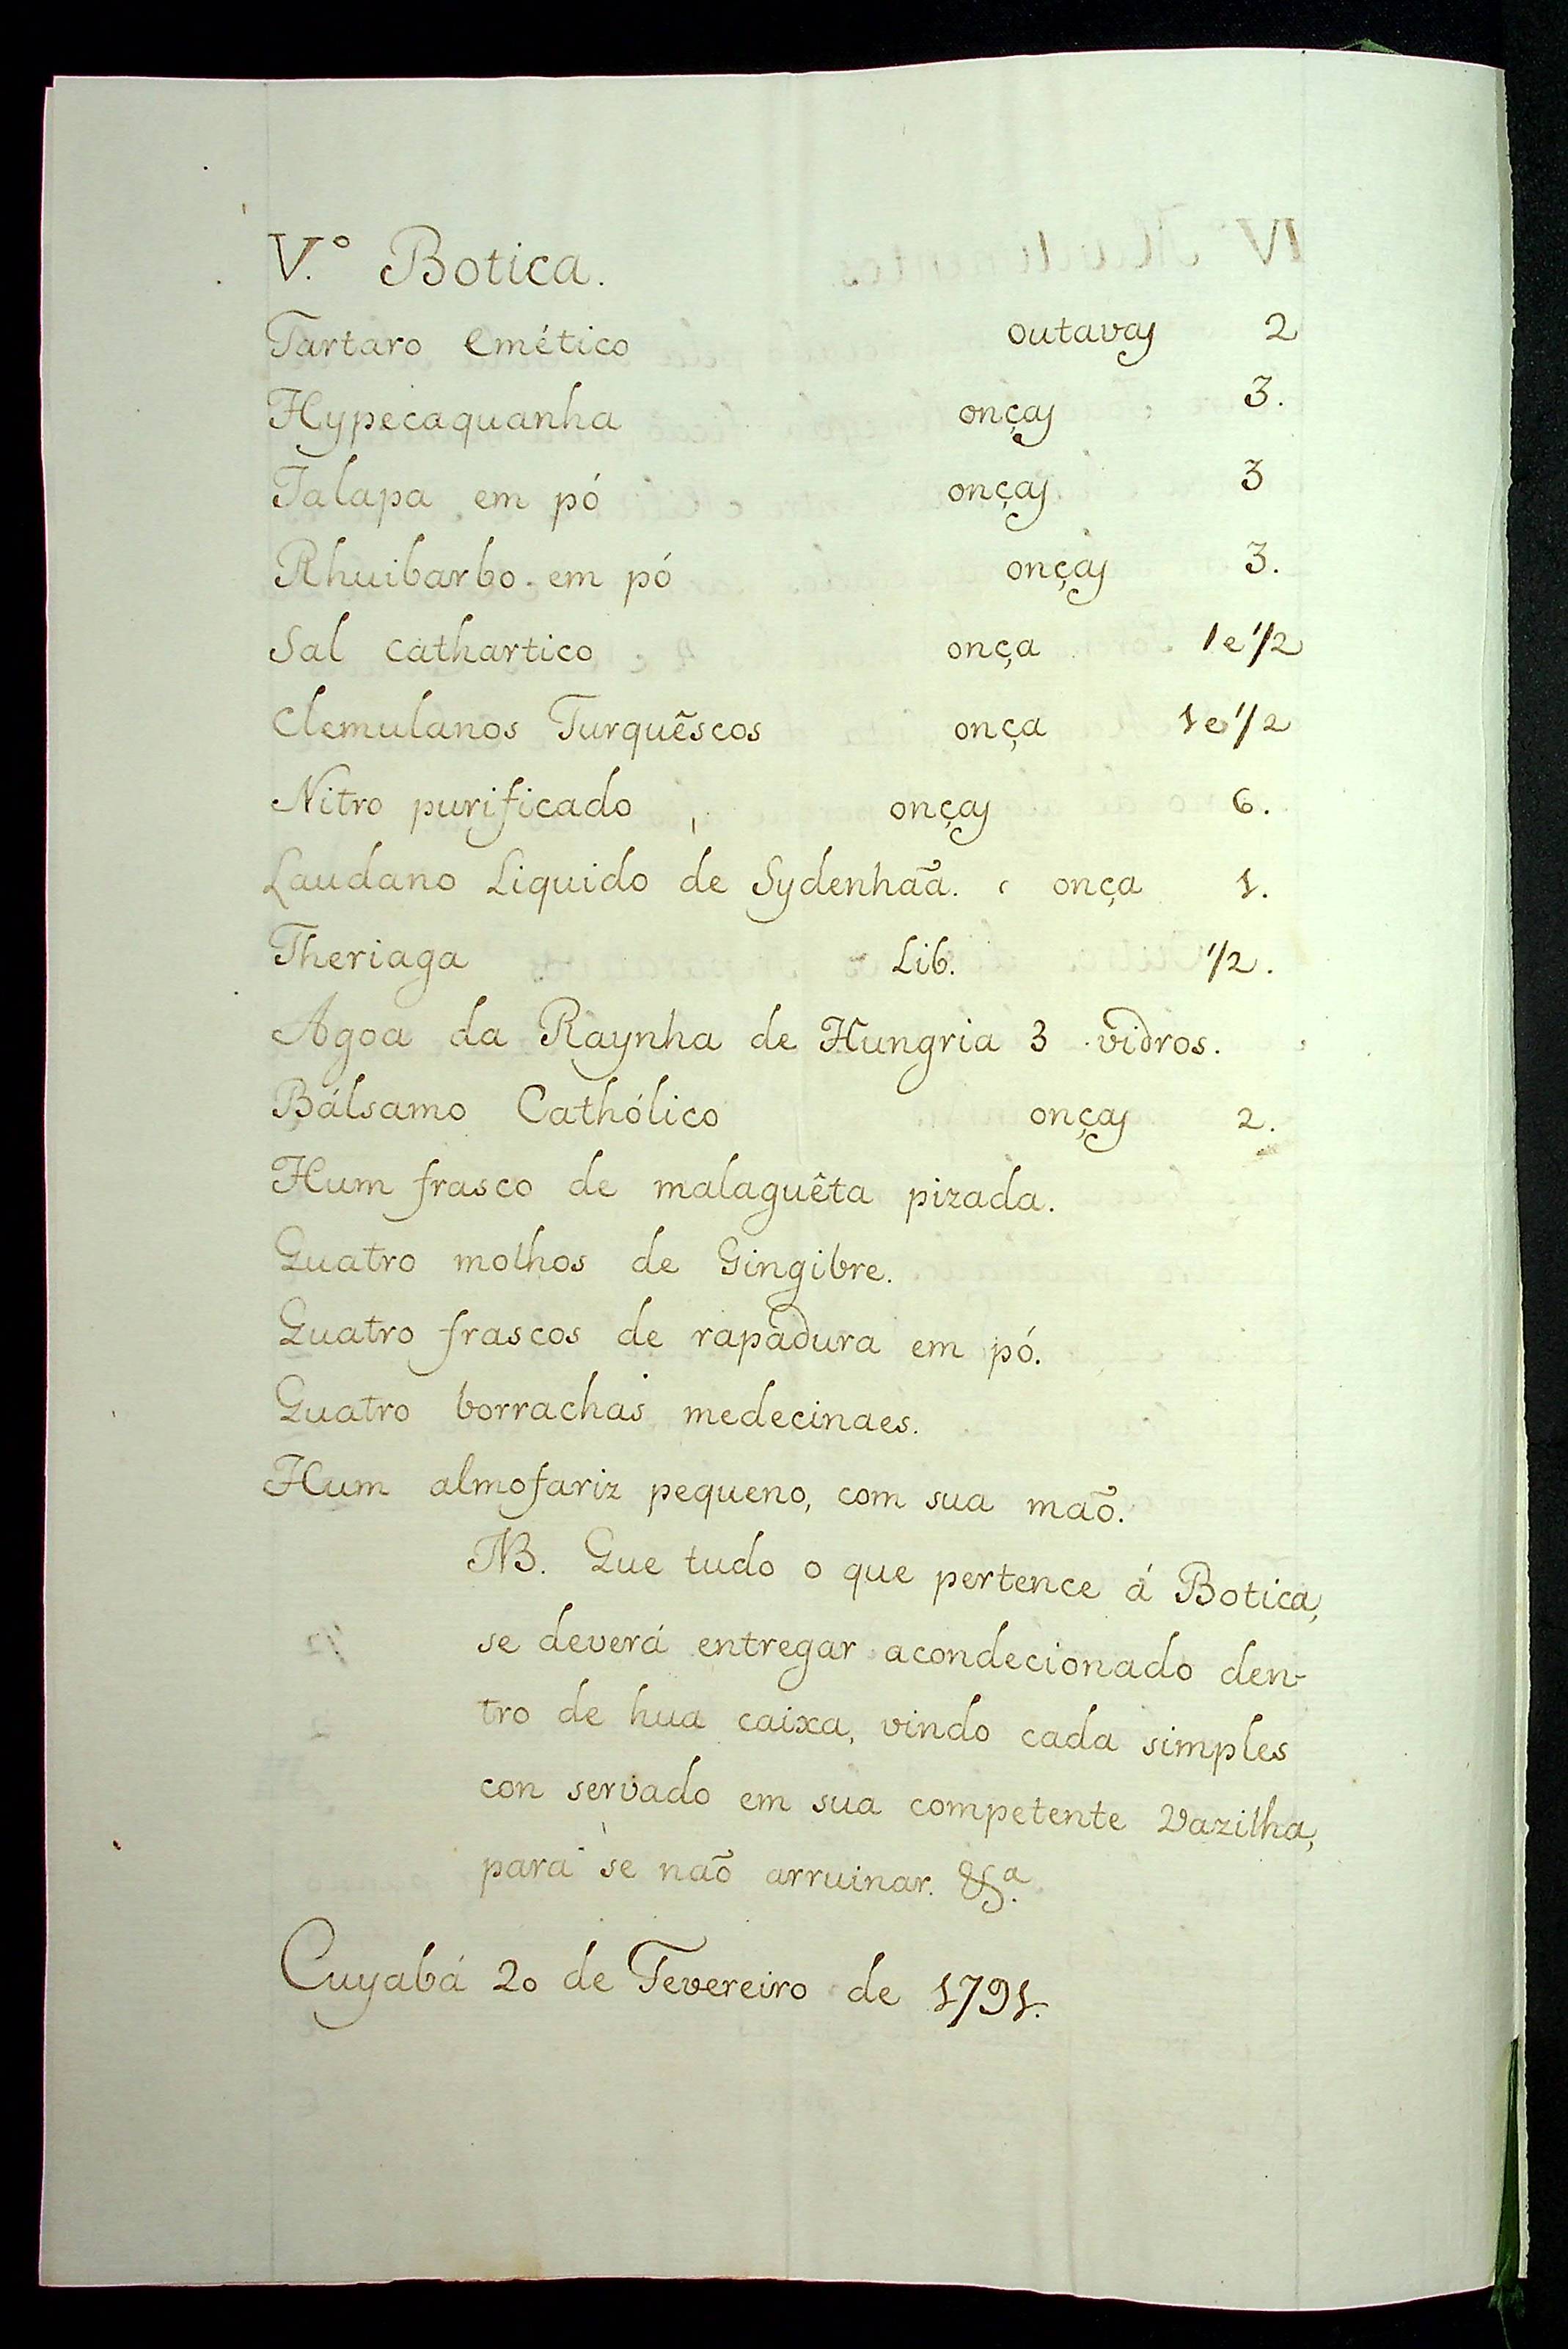 V.º Botica.
Tartaro emético outavas 2
Hypecaquanha onças 3.
Jalapa em pó onças 3
Rhuibarbo em pó onças 3.
Sal cathartico onça 1 e 1/2
Clemulanos Turquêscos onça 1 e 1/2
Nitro purificado onças 6.
Laudano Liquido de Sydenhaã. onça 1.
Theriaga Lib. 1/2.
Agoa da Raynha de Hungria 3 vidros.
Bálsamo Cathólico onças 2.
Hum frasco de malaguêta pizada.
Quatro molhos de Gingibre.
Quatro frascos de rapadura em pó.
Quatro borrachas medecinaes.
Hum almofariz pequeno, com sua maõ.
NB. Que tudo o que pertence á Botica,
se deverá entregar acondecionado den-
tro de hua caixa, vindo cada simples
con servado em sua competente Vazilha,
para se naõ arruinar. &ª.
Cuyabá 20 de Fevereiro de 1791.